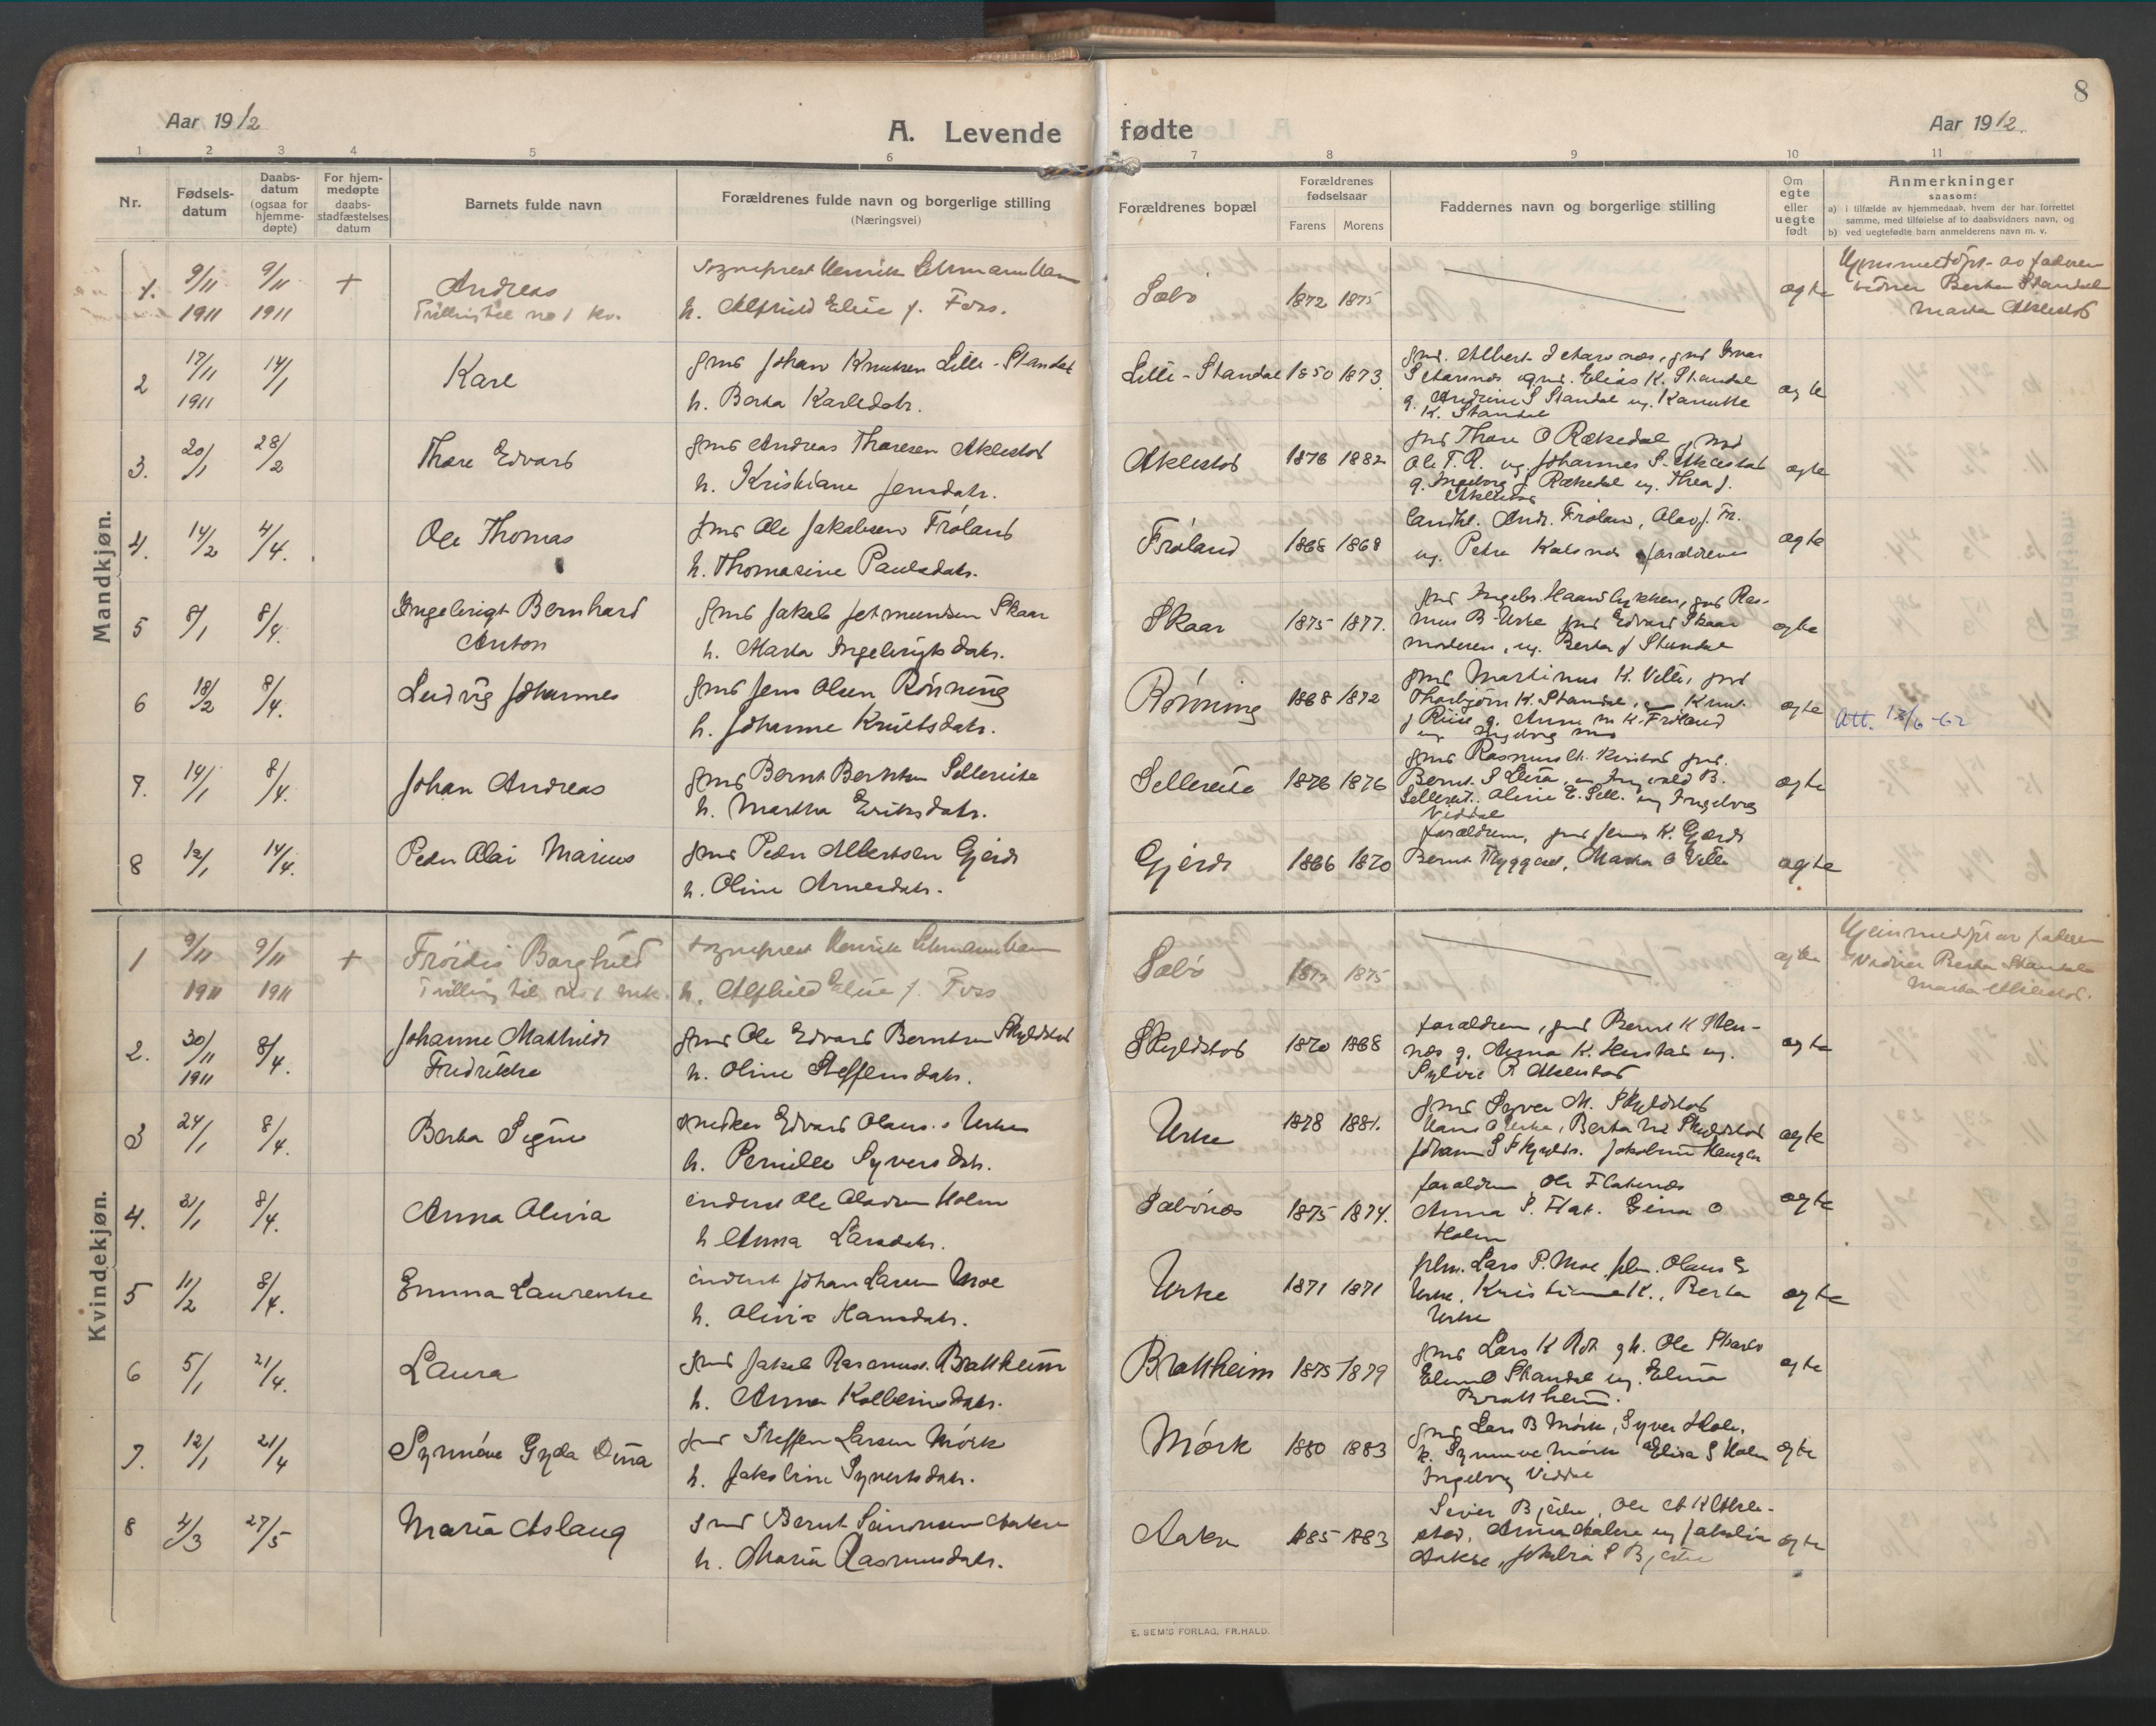 8
Aar 1912
A. Levende fødte
Aar 1912.
1 2 3 4 5 6 7 8 9 10 11
Nr.
Fødsels-
datum
Daabs-
datum
(ogsaa for
hjemme-
døpte)
For hjem-
medøpte
daabs-
stadfæstelses
datum
Barnets fulde navn
Forældrenes fulde navn og borgerlige stilling
(Næringsvei)
Forældrenes bopæl
Forældrenes
fødselsaar
Farens Morens
Faddernes navn og borgerlige stilling
Om
egte
eller
uegte
født
Anmerkninger
saasom:
a) i tilfælde av hjemmedaab, hvem der har forrettet
samme, med tilføielse af to daabsvidners navn, og
b) ved uegtefødte barn anmelderens navn m. v.
Mandkjøn.
1. 9/11 1911 9/11 1911 +
Andreas
Tvilling til no 1 kv.
sogneprest Henrik Lehmann
h. Alfhild Elise f. Foss.
Sæbö 1872 1875 ægte
Hjemmedöpt av faderen
vidner Berta Standal
Marta Aklestad
2 17/11 1911 14/1
Karl
gmd Johan Knutsen Lille-Standal
h. Berta Karlsdatr.
Lille-Standal 1850 1873.
gmd. Albert
gmd. Elias K. Standal
K. Standal
ægte
3. 20/1 28/2
Thore Edvard
gmd Andreas Thoresen Aklestad
h. Kristiane Jensdatr.
Aklestad 1876 1882
gmd Thore O Rækedal
Ole T. R. ug. Johannes S. Aklestad
g. Ingeborg J Rækedal ug. Thea J.
Aklestad
ægte
4. 14/2 4/4.
Ole Thomas
gmd Ole Jakobsen Fröland
h. Thomasine Paulsdatr.
Fröland 1868 1868
Landhl. Andr. Fröland, Olav J. Fr.
ug. Petra forældrene
ægte
5 8/1 8/4.
Ingebrigt Bernhard
Anton
gmd Jakob Jetmundsen Skaar
h. Marta Ingebrigtsdatr.
Skaar 1875 1877.
gmd Ingebr. gmd Ras-
mus B Urke gmd Edvard Skaar
moderen, ug. Berta J Standal
ægte
6 18/2 8/4.
Ludvig Johannes
gmd Jens Olsen Rönning
h. Johanne Knutsdatr.
Rönning 1868 1872
gmd Martinus K. Velle, gmd
Thorbjörn K. Standal, Knut
J Riise g. Anne M K. Fröland
ægte
Att. 13/6-62
7. 14/1 8/4.
Johan Andreas
gmd Bernt Berntsen Sellereite
h. Martha Eriksdatr.
Sellereite 1876 1876
gmd Rasmus
Bernt S
Oline E. Sell. ug Ingeborg
Viddal
ægte
8 12/1 14/4.
Peder Olai Marius
gmd Peder Albertsen Gjerde
h. Oline Arnesdatr.
Gjerde 1866 1870
forældrene, gmd Jens K. Gjerde
Bernt Tryggest, Marta O Velle
ægte
Kvindekjøn.
1 9/11 1911 9/11 1911 +
Fröidis Borghild
Tvilling til no 1 mk.
sogneprest Henrik Lehmann
h. Alfhild Elise f. Foss
Sæbö 1872 1875 ægte
Hjemmedöpt av faderen
Vidner Berta Standal
Marta Aklestad.
2. 30/11 1911 8/4.
Johanne Mathilde
Fredrikke
gmd Ole Edvard Berntsen Skyldstad
h. Oline Steffensdatr.
Skyldstad 1870 1868
forældrene, gmd Bernt K Sten-
næs g. Anna K. ug.
Sylvie R Aklestad
ægte
3 24/1 8/4.
Berta Signe
snedker Edvard Olaus. Urke
h. Pernille Syversdatr.
Urke 1878 1881.
gmd Syver M. Skyldstad
Hans O Urke, Berta M Skyldstad
Johanne S Skyldst.
ægte
4. 31/1 8/4.
Anna Olivia
inderst Ole Olsen Holm
h Anna Larsdatr.
Sæbönes 1875 1874.
forældrene Ole Flatenæs
Anna P. Flat. Gina O
Holm
ægte
5 11/2 8/4.
Emma Laurentse
inderst Johan Larsen Moe
h. Olivia Hansdatr.
Urke 1871 1871
plm. Lars P. Moe plm. Olaus E
Urke, Kristianne K., Berta
Urke
ægte
6 5/1 21/4.
Laura
gmd Jakob Rasmuss. Brattheim
h. Anna Kolbeinsdatr.
Brattheim 1875 1879
gmd Lars K g k. Ole
Standal ug. Elina
Brattheim.
ægte
7. 12/1 21/4
Synnöve Gyda Dina
gmd Steffen Larsen Mörk
h. Jakobine Syvertsdatr.
Mörk 1880 1883
gmd Lars B Mörk, Syver Holm,
k. Synnöve Mörk Elisa S Holm
Ingeborg Viddal
ægte
8 4/3 27/5
Maria Aslaug
gmd Bernt Simonsen Aakre
h. Maria Rasmusdatr.
Aakre 1885 1883
Siver Bjerke, Ole A K Akle-
stad, Anna Aakre ug Jakobia
Aakre, Jakobia S Bjerke
ægte
E. SEM'S FORLAG, FR.HALD.